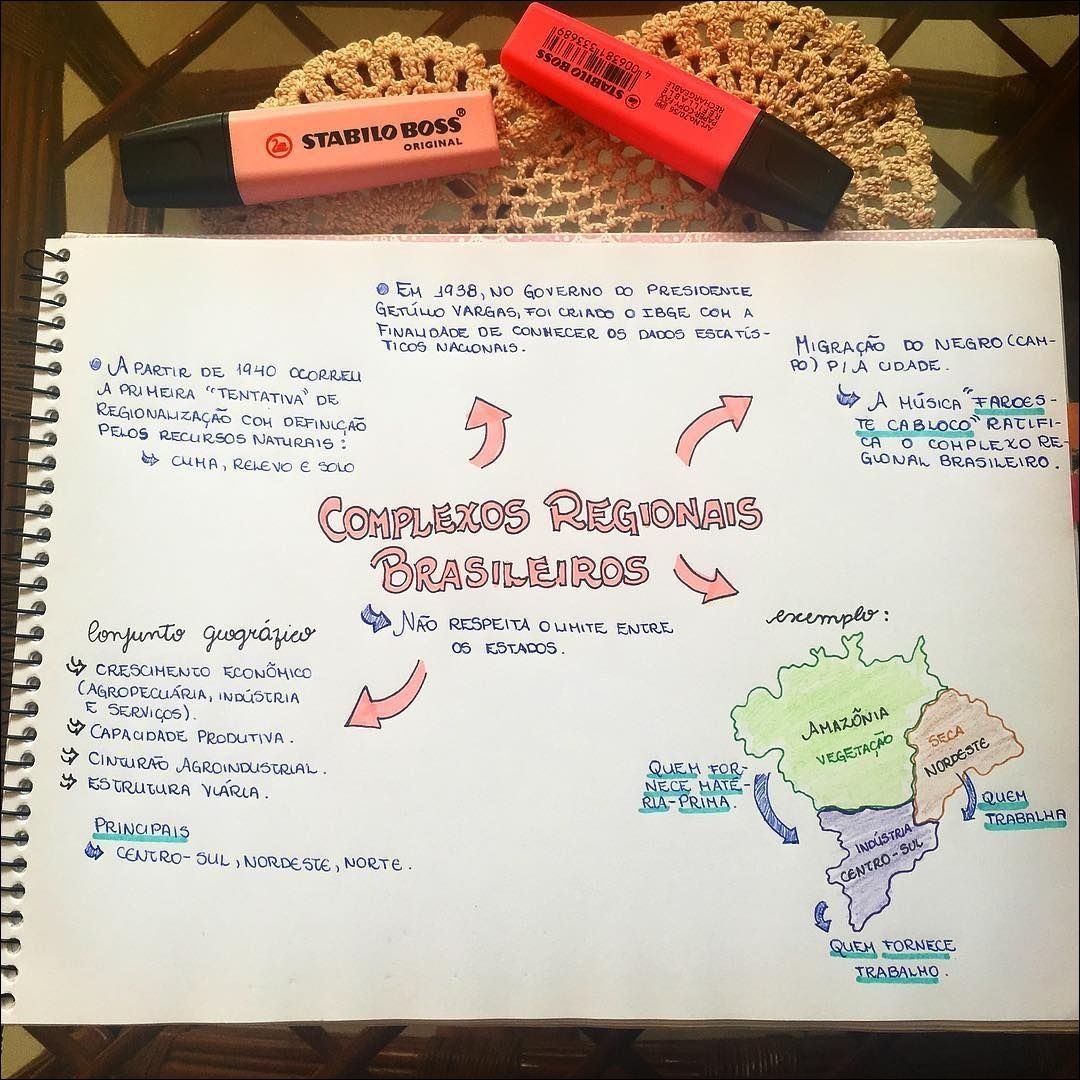 STABILO BOSS®
ORIGINAL
4 006381 333689
STABILO BOSS
Art.No.70/56
PAPER-COPY-FAX
REFILLABLE
RECHARGEABLE
EM 1938, NO GOVERNO DO PRESIDENTE
GETÚLIO VARGAS, FOI CRIADO O IBGE COM A
FINALIDADE DE CONHECER OS DADOS ESTATÍS-
TICOS NACIONAIS.
A PARTIR DE 1940 OCORREU
A PRIMEIRA "TENTATIVA" DE
REGIONALIZAÇÃO COM DEFINIÇÃO
PELOS RECURSOS NATURAIS:
CLIMA, RELEVO E SOLO
MIGRAÇÃO DO NEGRO (CAM-
PO) P/ A CIDADE.
A MÚSICA "FAROES-
TE CABLOCO" RATIFI-
CA O COMPLEXO RE-
GIONAL BRASILEIRO.
COMPLEXOS REGIONAIS
BRASILEIROS
NÃO RESPEITA O LIMITE ENTRE
OS ESTADOS.
Conjunto geográfico
CRESCIMENTO ECONÔMICO
(AGROPECUÁRIA, INDÚSTRIA
E SERVIÇOS).
CAPACIDADE PRODUTIVA.
CINTURÃO AGROINDUSTRIAL.
ESTRUTURA VIÁRIA.
PRINCIPAIS
CENTRO-SUL, NORDESTE, NORTE.
exemplo:
AMAZÔNIA
VEGETAÇÃO
SECA
NORDESTE
QUEM FOR-
NECE MATÉ-
RIA-PRIMA.
QUEM
TRABALHA
INDÚSTRIA
CENTRO-SUL
QUEM FORNECE
TRABALHO.